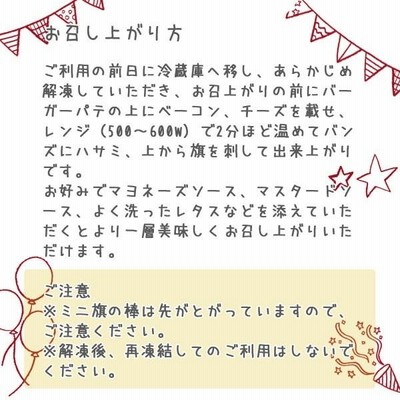 お召し上がり方
ご利用の前日に冷蔵庫へ移し、あらかじめ
解凍していただき、お召上がりの前にバー
ガーパテの上にベーコン、チーズを載せ、
レンジ（500～600W）で2分ほど温めてバン
ズにハサミ、上から旗を刺して出来上がり
です。
お好みでマヨネーズソース、マスタードソ
ース、よく洗ったレタスなどを添えていた
だくとより一層美味しくお召し上がりいた
だけます。
ご注意
※ミニ旗の棒は先がとがっていますので、
ご注意ください。
※解凍後、再凍結してのご利用はしないで
ください。